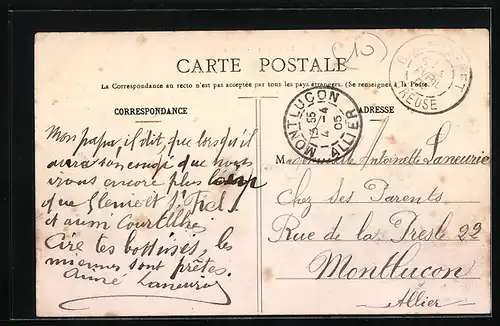 (10)
CARTE POSTALE
La Correspondance au recto n'est pas acceptée par tous les pays étrangers. (Se renseigner à la Poste.)
CORRESPONDANCE
ADRESSE
MONTLUÇON
4-4
05
ALLIER
CREUSE
Mon papa, il dit, que lorsqu'il
aura son congé que nous
irons encore plus loin
que
et aussi Courtille
Cire tes bottines, les
miennes sont prêtes.
Aimé Laneurie
Mademoiselle Antoinette Laneurie
Chez Ses Parents
Rue de la Presle 22
Montluçon
Allier